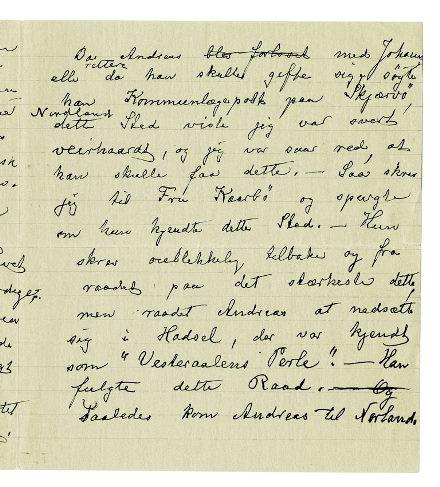 Da Andreas blev forlovet med Johan
elle da han skulde gifte sig, søgte
rettere
han Kommunelægepost paa Skjærvö,
Nordland
dette Sted viste jeg var svært
veirhaardt, og jeg var saar ved, at
han skulle faa dette. — Saa skrev
jeg til Fru Kaarbö og spørgte
om hun kjendte dette Sted. — Hun
skrev oieblikkelig tilbake og fra
raadet paa det stærkeste dette,
men raadet Andreas at nedsætte
sig i Hadsel, der var kjendt
som "Vesteraalens Perle". — Han
fulgte dette Raad. — Og
Saaledes kom Andreas til Norland.